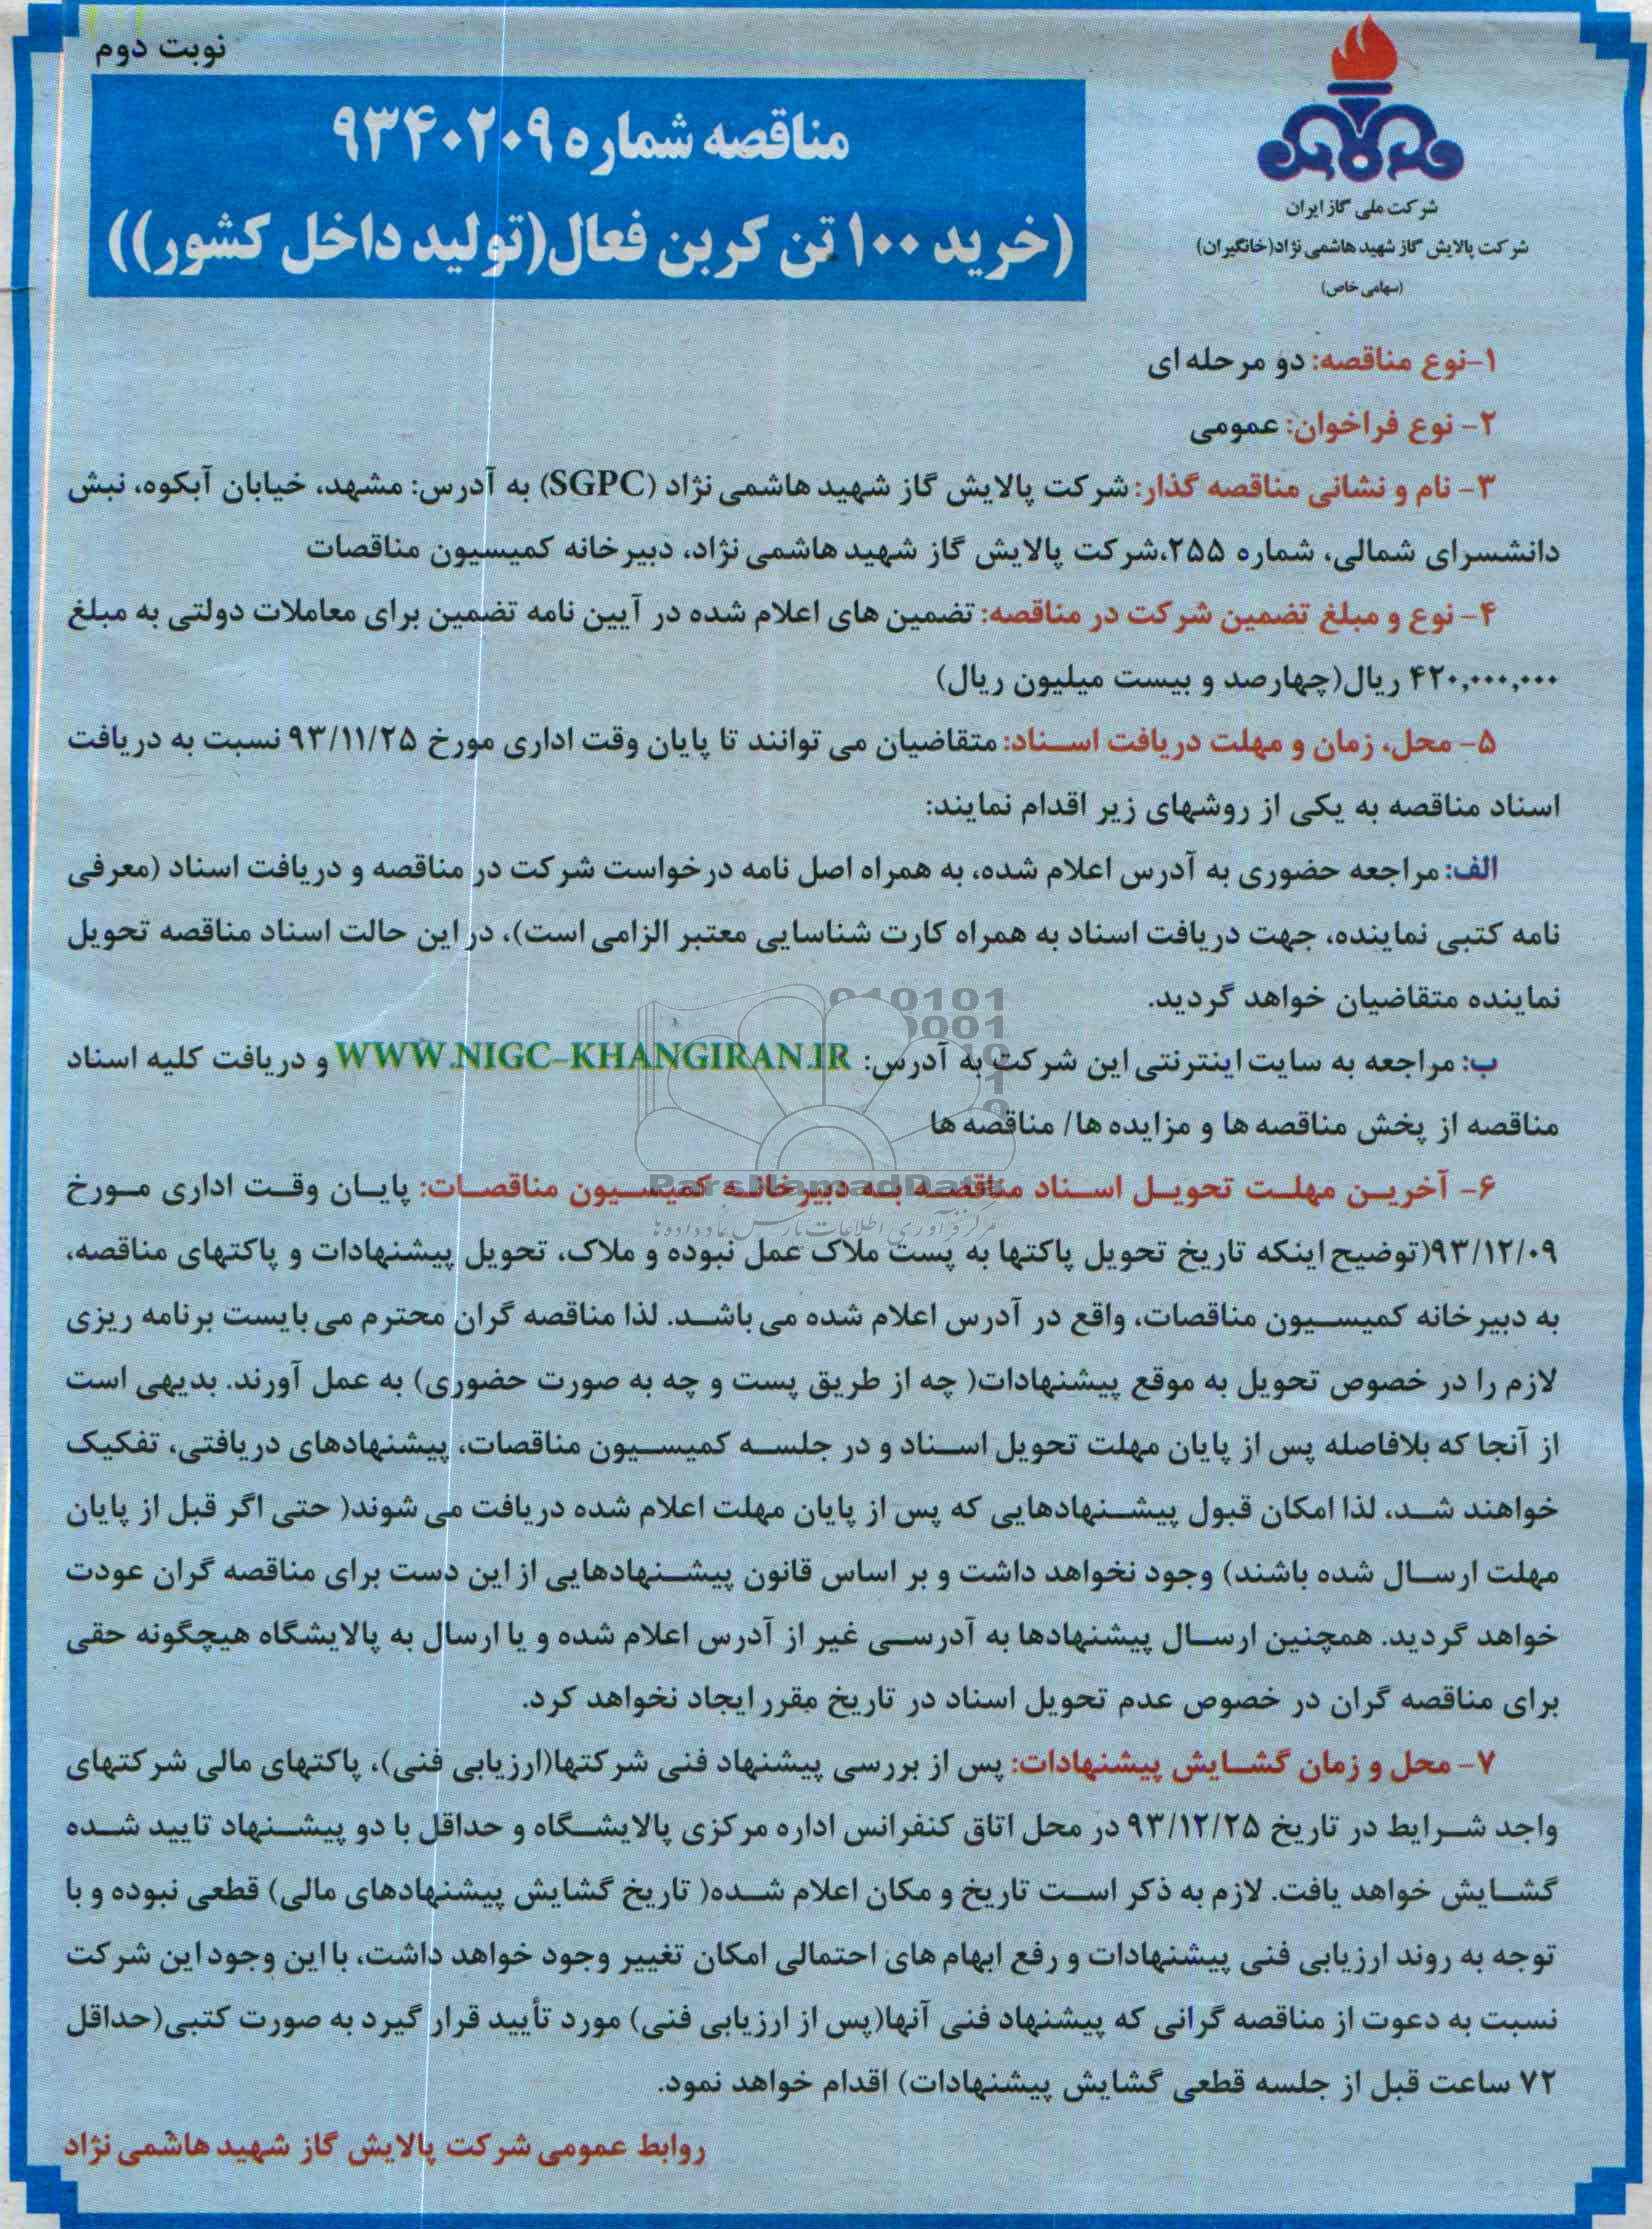 نوبت دوم
شرکت ملی گاز ایران
شرکت پالایش گاز شهید هاشمی نژاد(خانگیران)
(سهامی خاص)
مناقصه شماره ۹۳۴۰۲۰۹
(خرید ۱۰۰ تن کربن فعال(تولید داخل کشور))
۱-نوع مناقصه: دو مرحله ای
۲- نوع فراخوان: عمومی
۳- نام و نشانی مناقصه گذار: شرکت پالایش گاز شهید هاشمی نژاد (SGPC) به آدرس: مشهد، خیابان آبکوه، نبش
دانشسرای شمالی، شماره ۲۵۵،شرکت پالایش گاز شهید هاشمی نژاد، دبیرخانه کمیسیون مناقصات
۴- نوع و مبلغ تضمین شرکت در مناقصه: تضمین های اعلام شده در آیین نامه تضمین برای معاملات دولتی به مبلغ
۴۲۰,۰۰۰,۰۰۰ ریال(چهارصد و بیست میلیون ریال)
۵- محل، زمان و مهلت دریافت اسناد: متقاضیان می توانند تا پایان وقت اداری مورخ ۹۳/۱۱/۲۵ نسبت به دریافت
اسناد مناقصه به یکی از روشهای زیر اقدام نمایند:
الف: مراجعه حضوری به آدرس اعلام شده، به همراه اصل نامه درخواست شرکت در مناقصه و دریافت اسناد (معرفی
نامه کتبی نماینده، جهت دریافت اسناد به همراه کارت شناسایی معتبر الزامی است)، در این حالت اسناد مناقصه تحویل
نماینده متقاضیان خواهد گردید.
ب: مراجعه به سایت اینترنتی این شرکت به آدرس: WWW.NIGC-KHANGIRAN.IR و دریافت کلیه اسناد
مناقصه از پخش مناقصه ها و مزایده ها/ مناقصه ها
۶- آخرین مهلت تحویل اسناد مناقصه به دبیرخانه کمیسیون مناقصات: پایان وقت اداری مورخ
۹۳/۱۲/۰۹(توضیح اینکه تاریخ تحویل پاکتها به پست ملاک عمل نبوده و ملاک، تحویل پیشنهادات و پاکتهای مناقصه،
به دبیرخانه کمیسیون مناقصات، واقع در آدرس اعلام شده می باشد. لذا مناقصه گران محترم می بایست برنامه ریزی
لازم را در خصوص تحویل به موقع پیشنهادات( چه از طریق پست و چه به صورت حضوری) به عمل آورند. بدیهی است
از آنجا که بلافاصله پس از پایان مهلت تحویل اسناد و در جلسه کمیسیون مناقصات، پیشنهادهای دریافتی، تفکیک
خواهند شد، لذا امکان قبول پیشنهادهایی که پس از پایان مهلت اعلام شده دریافت می شوند( حتی اگر قبل از پایان
مهلت ارسال شده باشند) وجود نخواهد داشت و بر اساس قانون پیشنهادهایی از این دست برای مناقصه گران عودت
خواهد گردید. همچنین ارسال پیشنهادها به آدرسی غیر از آدرس اعلام شده و یا ارسال به پالایشگاه هیچگونه حقی
برای مناقصه گران در خصوص عدم تحویل اسناد در تاریخ مقرر ایجاد نخواهد کرد.
۷- محل و زمان گشایش پیشنهادات: پس از بررسی پیشنهاد فنی شرکتها(ارزیابی فنی)، پاکتهای مالی شرکتهای
واجد شرایط در تاریخ ۹۳/۱۲/۲۵ در محل اتاق کنفرانس اداره مرکزی پالایشگاه و حداقل با دو پیشنهاد تایید شده
گشایش خواهد یافت. لازم به ذکر است تاریخ و مکان اعلام شده( تاریخ گشایش پیشنهادهای مالی) قطعی نبوده و با
توجه به روند ارزیابی فنی پیشنهادات و رفع ابهام های احتمالی امکان تغییر وجود خواهد داشت، با این وجود این شرکت
نسبت به دعوت از مناقصه گرانی که پیشنهاد فنی آنها(پس از ارزیابی فنی) مورد تأیید قرار گیرد به صورت کتبی(حداقل
۷۲ ساعت قبل از جلسه قطعی گشایش پیشنهادات) اقدام خواهد نمود.
روابط عمومی شرکت پالایش گاز شهید هاشمی نژاد
ParsNamadData
مرکز فرآوری اطلاعات پارس نماد داده ها